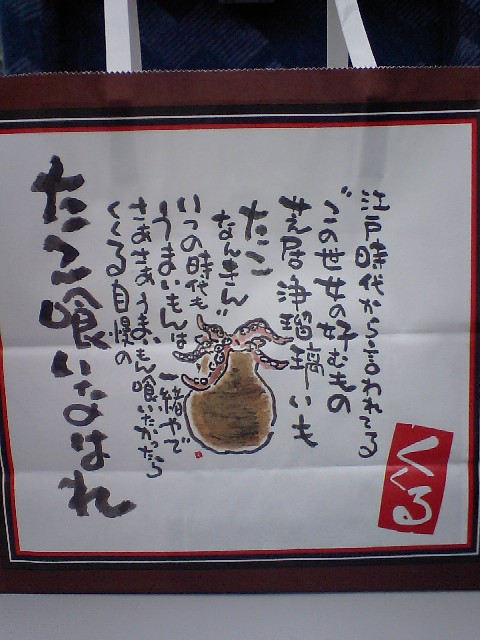 江戸時代から言われてる
“この世女の好むもの
芝居浄瑠璃いも
たこ
なんきん”
いつの時代も
うまいもんは一緒やで
さあさあうまいもん喰いたかったら
くくる自慢の
たこ喰いなはれ
くくる